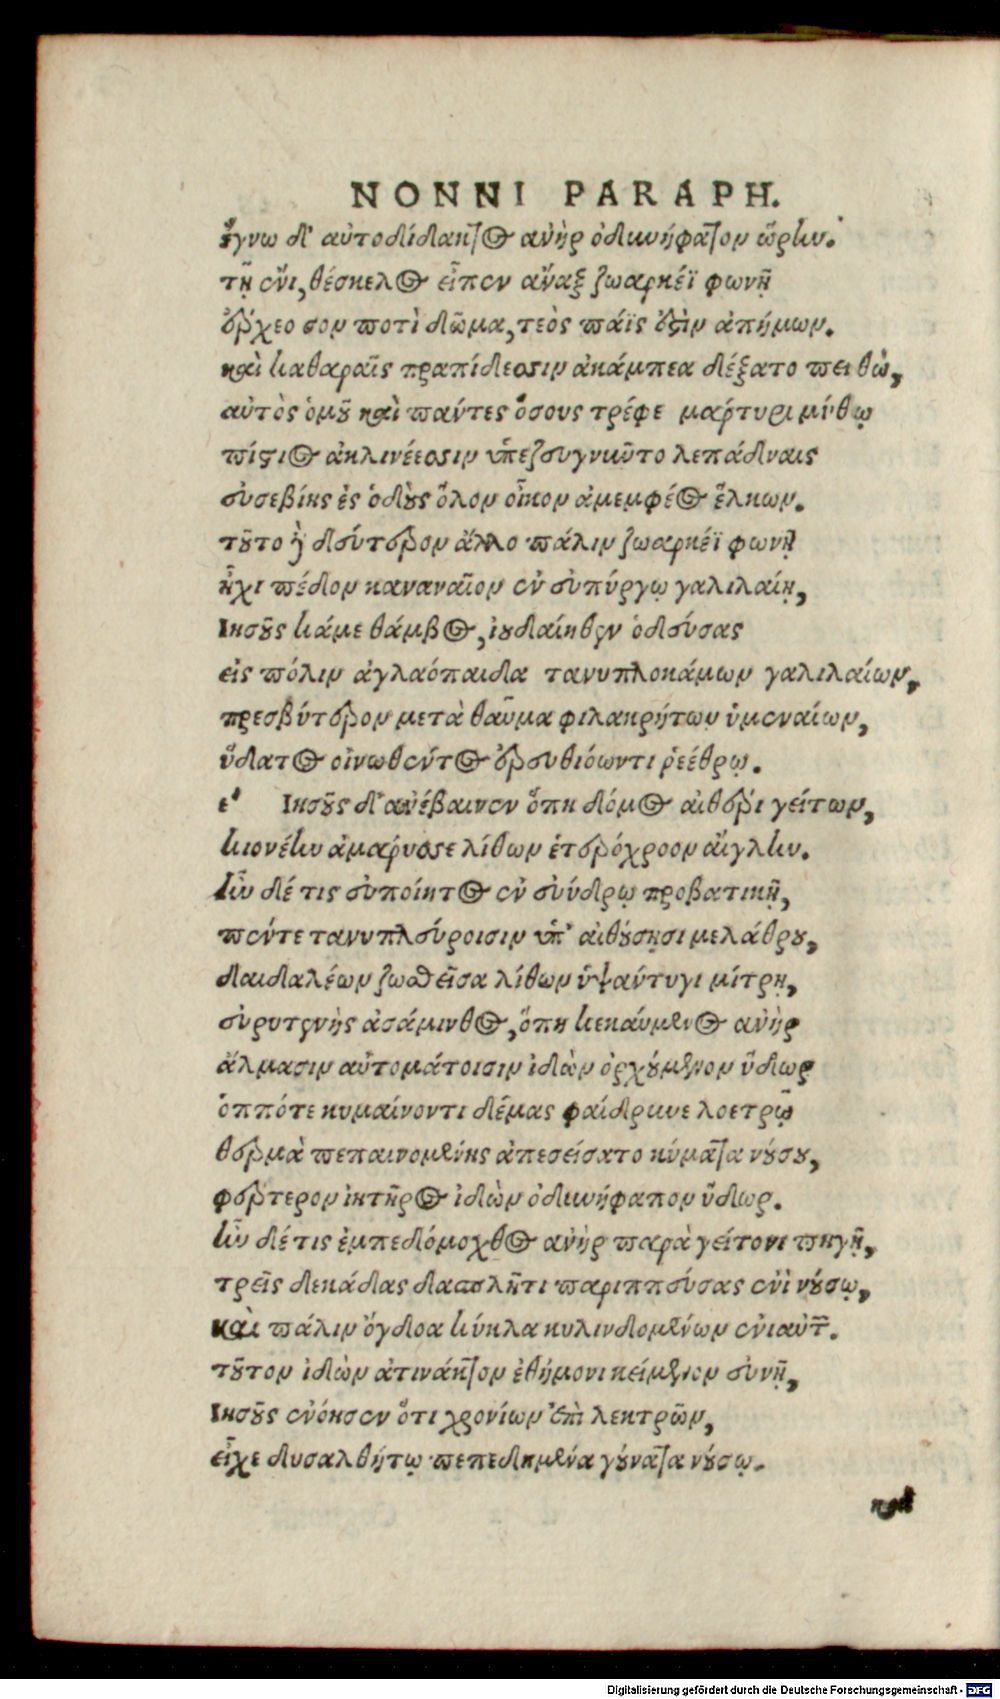 NONNI PARAPH.
ἔγνω δ' αὐτοδίδακτος ἀνὴρ ὀδυνήφατον ὥρην.
τῇ ἔνι, θέσκελος εἶπεν ἄναξ ζωαρκέϊ φωνῇ
ἔρχεο σὸν ποτὶ δῶμα, τεὸς πάϊς ἐστὶν ἀπήμων.
καὶ καθαραῖς πραπίδεσσιν ἀκάμπεα δέξατο πειθὼ,
αὐτὸς ὁμοῦ καὶ πάντες ὅσους τρέφε μάρτυρι μύθῳ
πίστιος ἀκλινέεσσιν ὑπεζσυγνῦτο λεπάδναις
εὐσεβίης ἐς ὁδοὺς ὅλον οἶκον ἀμεμφέος ἕλκων.
τοῦτο ἢ δεύτερον ἄλλο πάλιν ζωαρκέϊ φωνῇ
ἧχι πέδον καναναῖον ἐν εὐπύργῳ γαλιλαίῃ,
Ἰησοῦς κάμε θάμβος, ἰουδαίηθεν ὁδεύσας
εἰς πόλιν ἀγλαόπαιδα τανυπλοκάμων γαλιλαίων,
πρεσβύτερον μετὰ θαῦμα φιλακρήτων ὑμεναίων,
ὕδατος οἰνωθέντος ἐρευθιόωντι ῥεέθρῳ.
ε' Ἰησοῦς δ' ἀνέβαινεν ὅπη δόμος αἰθέρι γείτων,
κιονέην ἀμάρυσσε λίθων ἑτερόχροον αἴγλην.
ἦν δέ τις εὐποίητος ἐν εὐύδρῳ προβατικῇ,
πέντε τανυπλεύροισιν ὑπ' αἰθούσῃσι μελάθρου,
δαιδαλέων ζωσθεῖσα λίθων ὑψάντυγι μίτρῃ,
εὐρυτενὴς ἀσάμινθος, ὅπη κεκαύμενος ἀνὴρ
ἅλμασιν αὐτομάτοισιν ἰδὼν ὀρχούμενον ὕδωρ
ὁππότε κυμαίνοντι δέμας φαίδρυνε λοετρῷ
θερμὰ πεπαινομένης ἀπεσείσατο κύματα νούσου,
φέρτερον ἰητῆρος ἰδὼν ὀδυνήφαπον ὕδωρ.
ἦν δέ τις ἐμπεδόμοχθος ἀνὴρ παρὰ γείτονι πηγῇ,
τρεῖς δεκάδας δασπλῆτι παριππεύσας ἐνὶ νούσῳ,
καὶ πάλιν ὄγδοα κύκλα κυλινδομένων ἐνιαυτῶν.
τοῦτον ἰδὼν ἀτινάκτον ἐθήμονι κείμενον εὐνῇ,
Ἰησοῦς ἐνόησεν ὅτι χρονίων ἐπὶ λεκτρῶν,
εἶχε δυσαλθήτῳ πεπεδημένα γούνατα νούσῳ.
καὶ
Digitalisierung gefördert durch die Deutsche Forschungsgemeinschaft - DFG